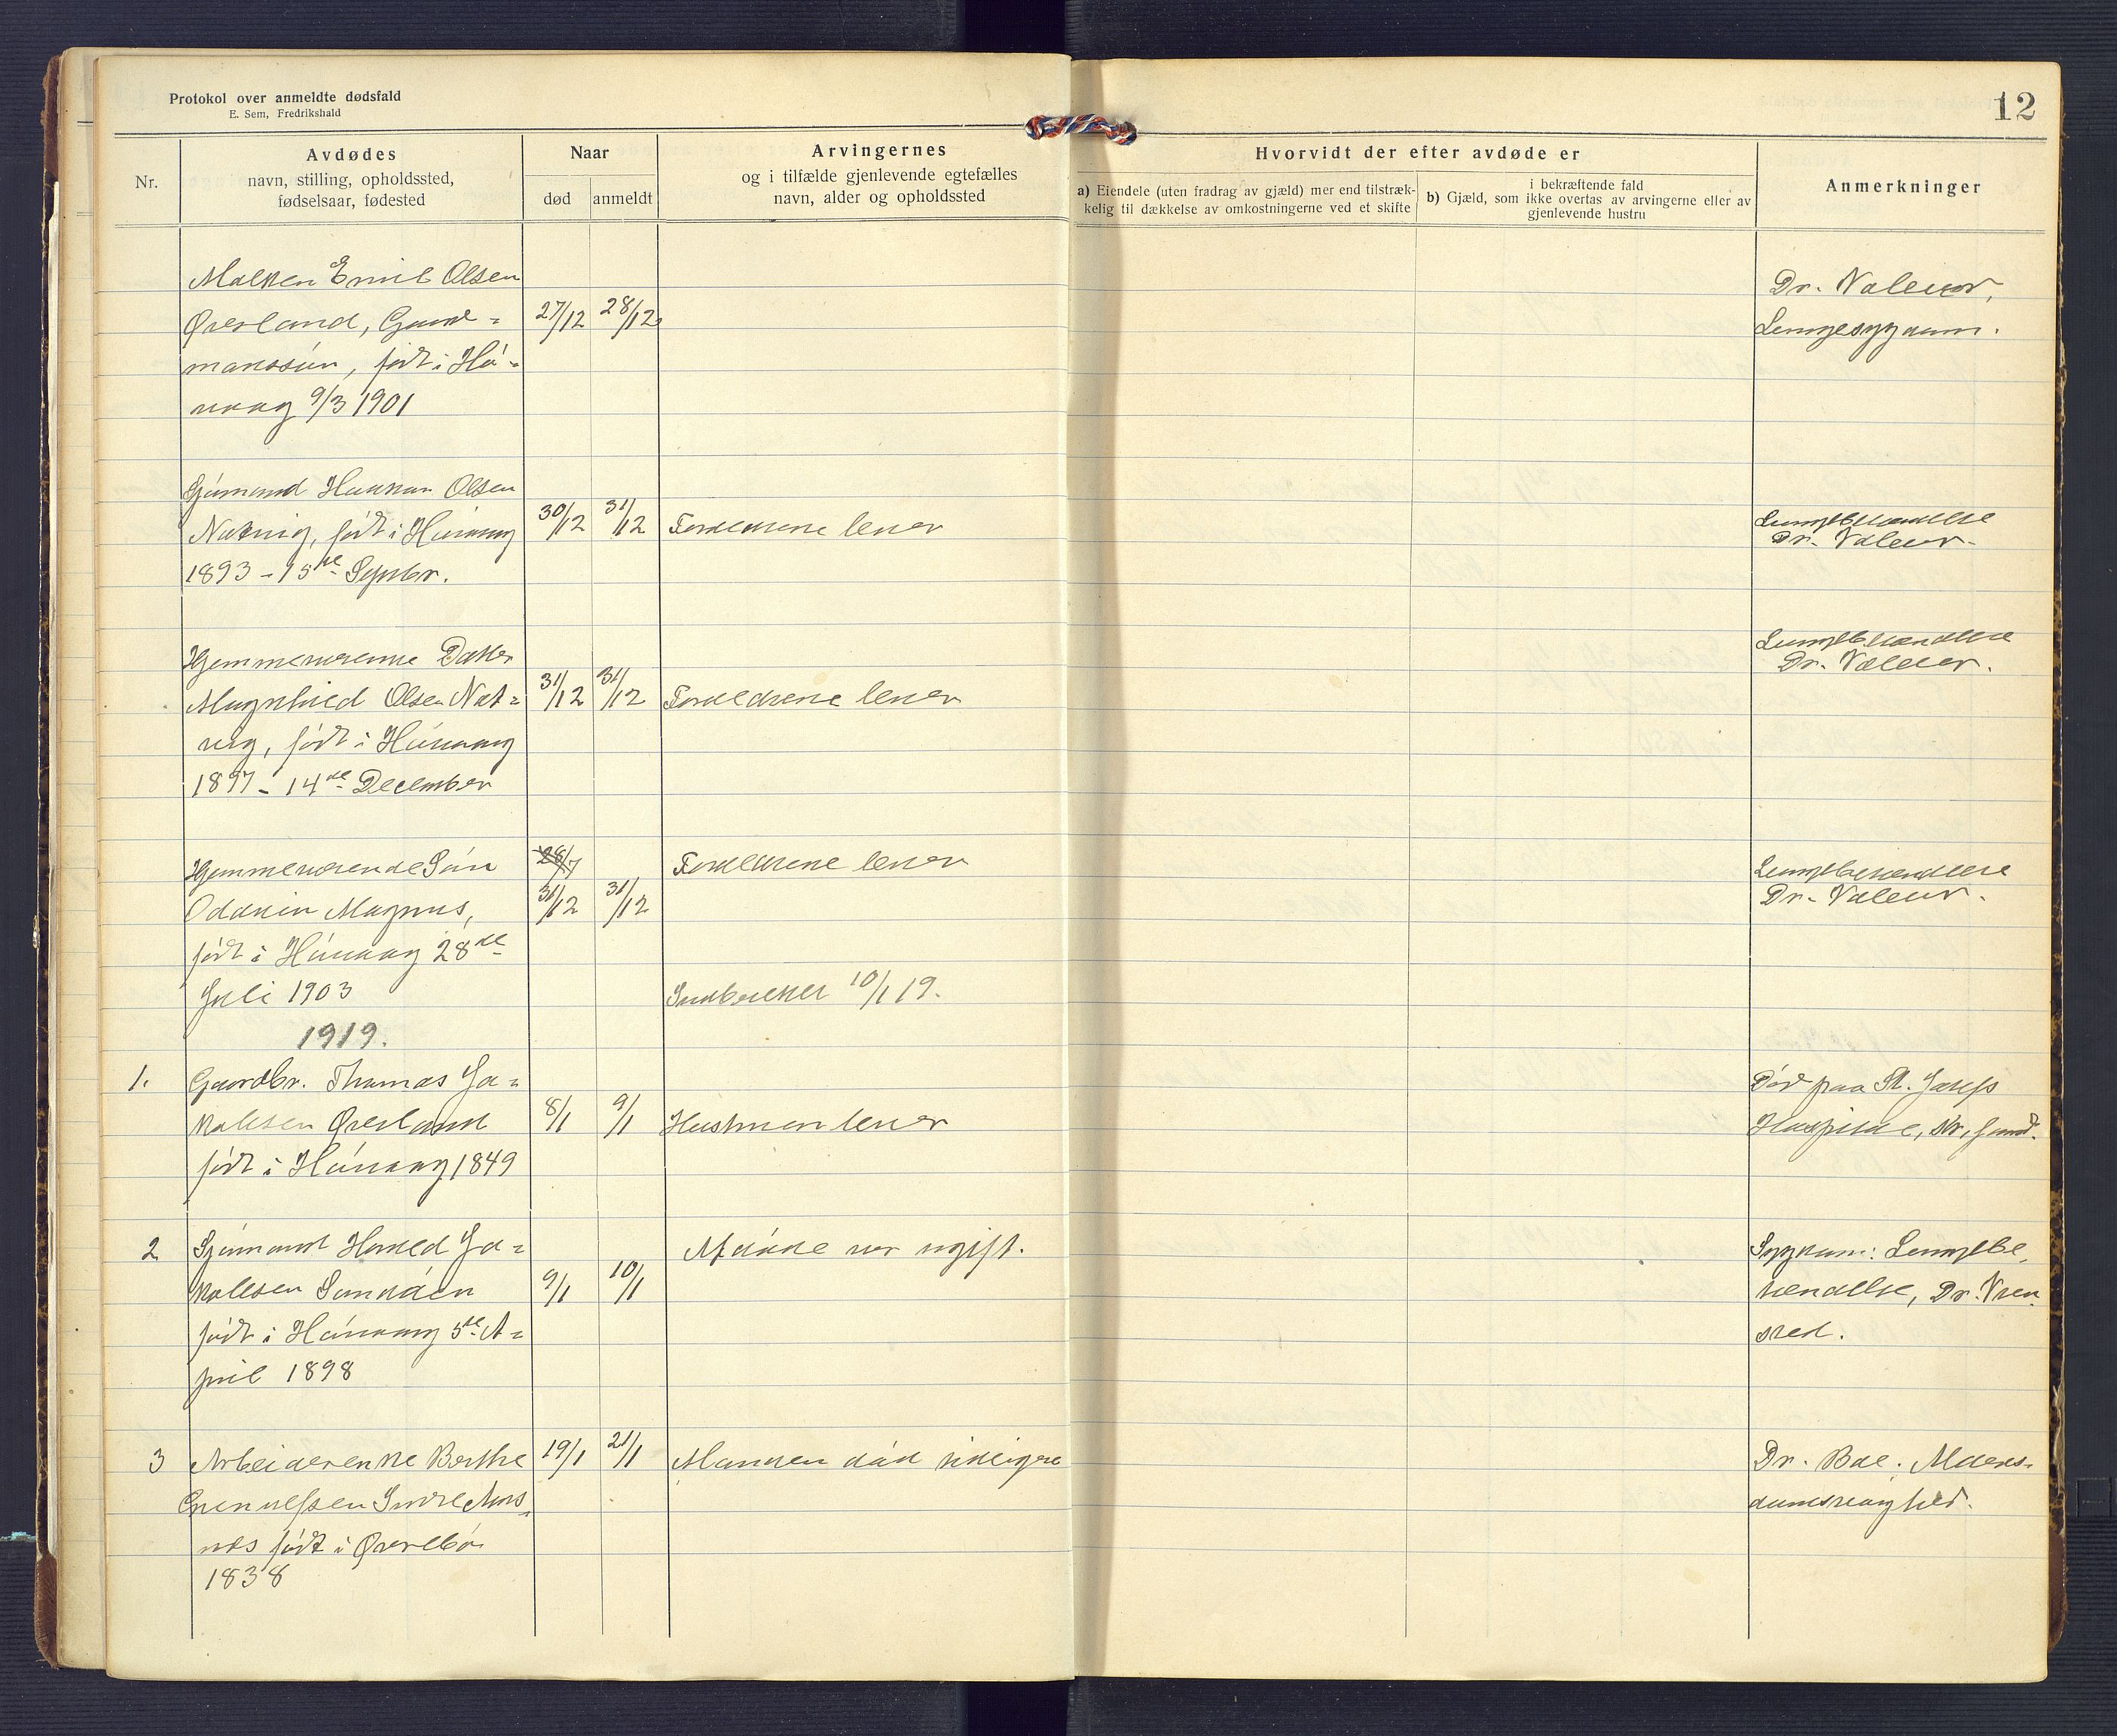 Protokol over anmeldte dødsfald
E. Sem, Fredrikshald
12
Nr.
Avdødes
navn, stilling, opholdssted,
fødselsaar, fødested
Naar
død
anmeldt
Arvingernes
og i tilfælde gjenlevende egtefælles
navn, alder og opholdssted
Hvorvidt der efter avdøde er
a) Eiendele (uten fradrag av gjæld) mer end tilstræk-
kelig til dækkelse av omkostningerne ved et skifte
i bekræftende fald
b) Gjæld, som ikke overtas av arvingerne eller av
gjenlevende hustru
Anmerkninger
Emil Olsen
Øvesland, Gaard-
manssøn, født i Hø-
vaag 9/3 1901
27/12 28/12
Dr. Valeur,
Lungesygdom.
Sjømand Haakon Olsen
Natvig, født i Høvaag
1893 - 15de Septbr.
30/12 31/12
Forældrene lever
Lungebetændelse
Dr. Valeur.
Hjemmeværende Datter
Magnhild Olsen Nat-
vig, født i Høvaag
1897 - 14de December
31/12 31/12
Forældrene lever
Lungebetændelse
Dr. Valeur.
Hjemmeværende Søn
Oddvin Magnus,
født i Høvaag 28de
Juli 1903
28/7
31/12 31/12
Forældrene lever
Lungebetændelse
Dr. Valeur.
Indberettet 10/1 19.
1919.
1. Gaardbr. Thomas Ja-
kobsen Øvesland
født i Høvaag 1849
8/1 9/1
Hustruen lever
Død paa St. Josefs
Hospital, Kr.sand.
2 Sjømand Harald Ja-
kobsen
født i Høvaag 5te A-
pril 1898
9/1 10/1
Afdøde var ugift.
Sygdom: Lungebe-
tændelse, Dr.
3 Arbeiderenke Berthe
Indre Aars-
nes født i Øvrebø
1838
19/1 21/1
Manden død tidligere
Dr. Boe. Alders-
domssvaghed.